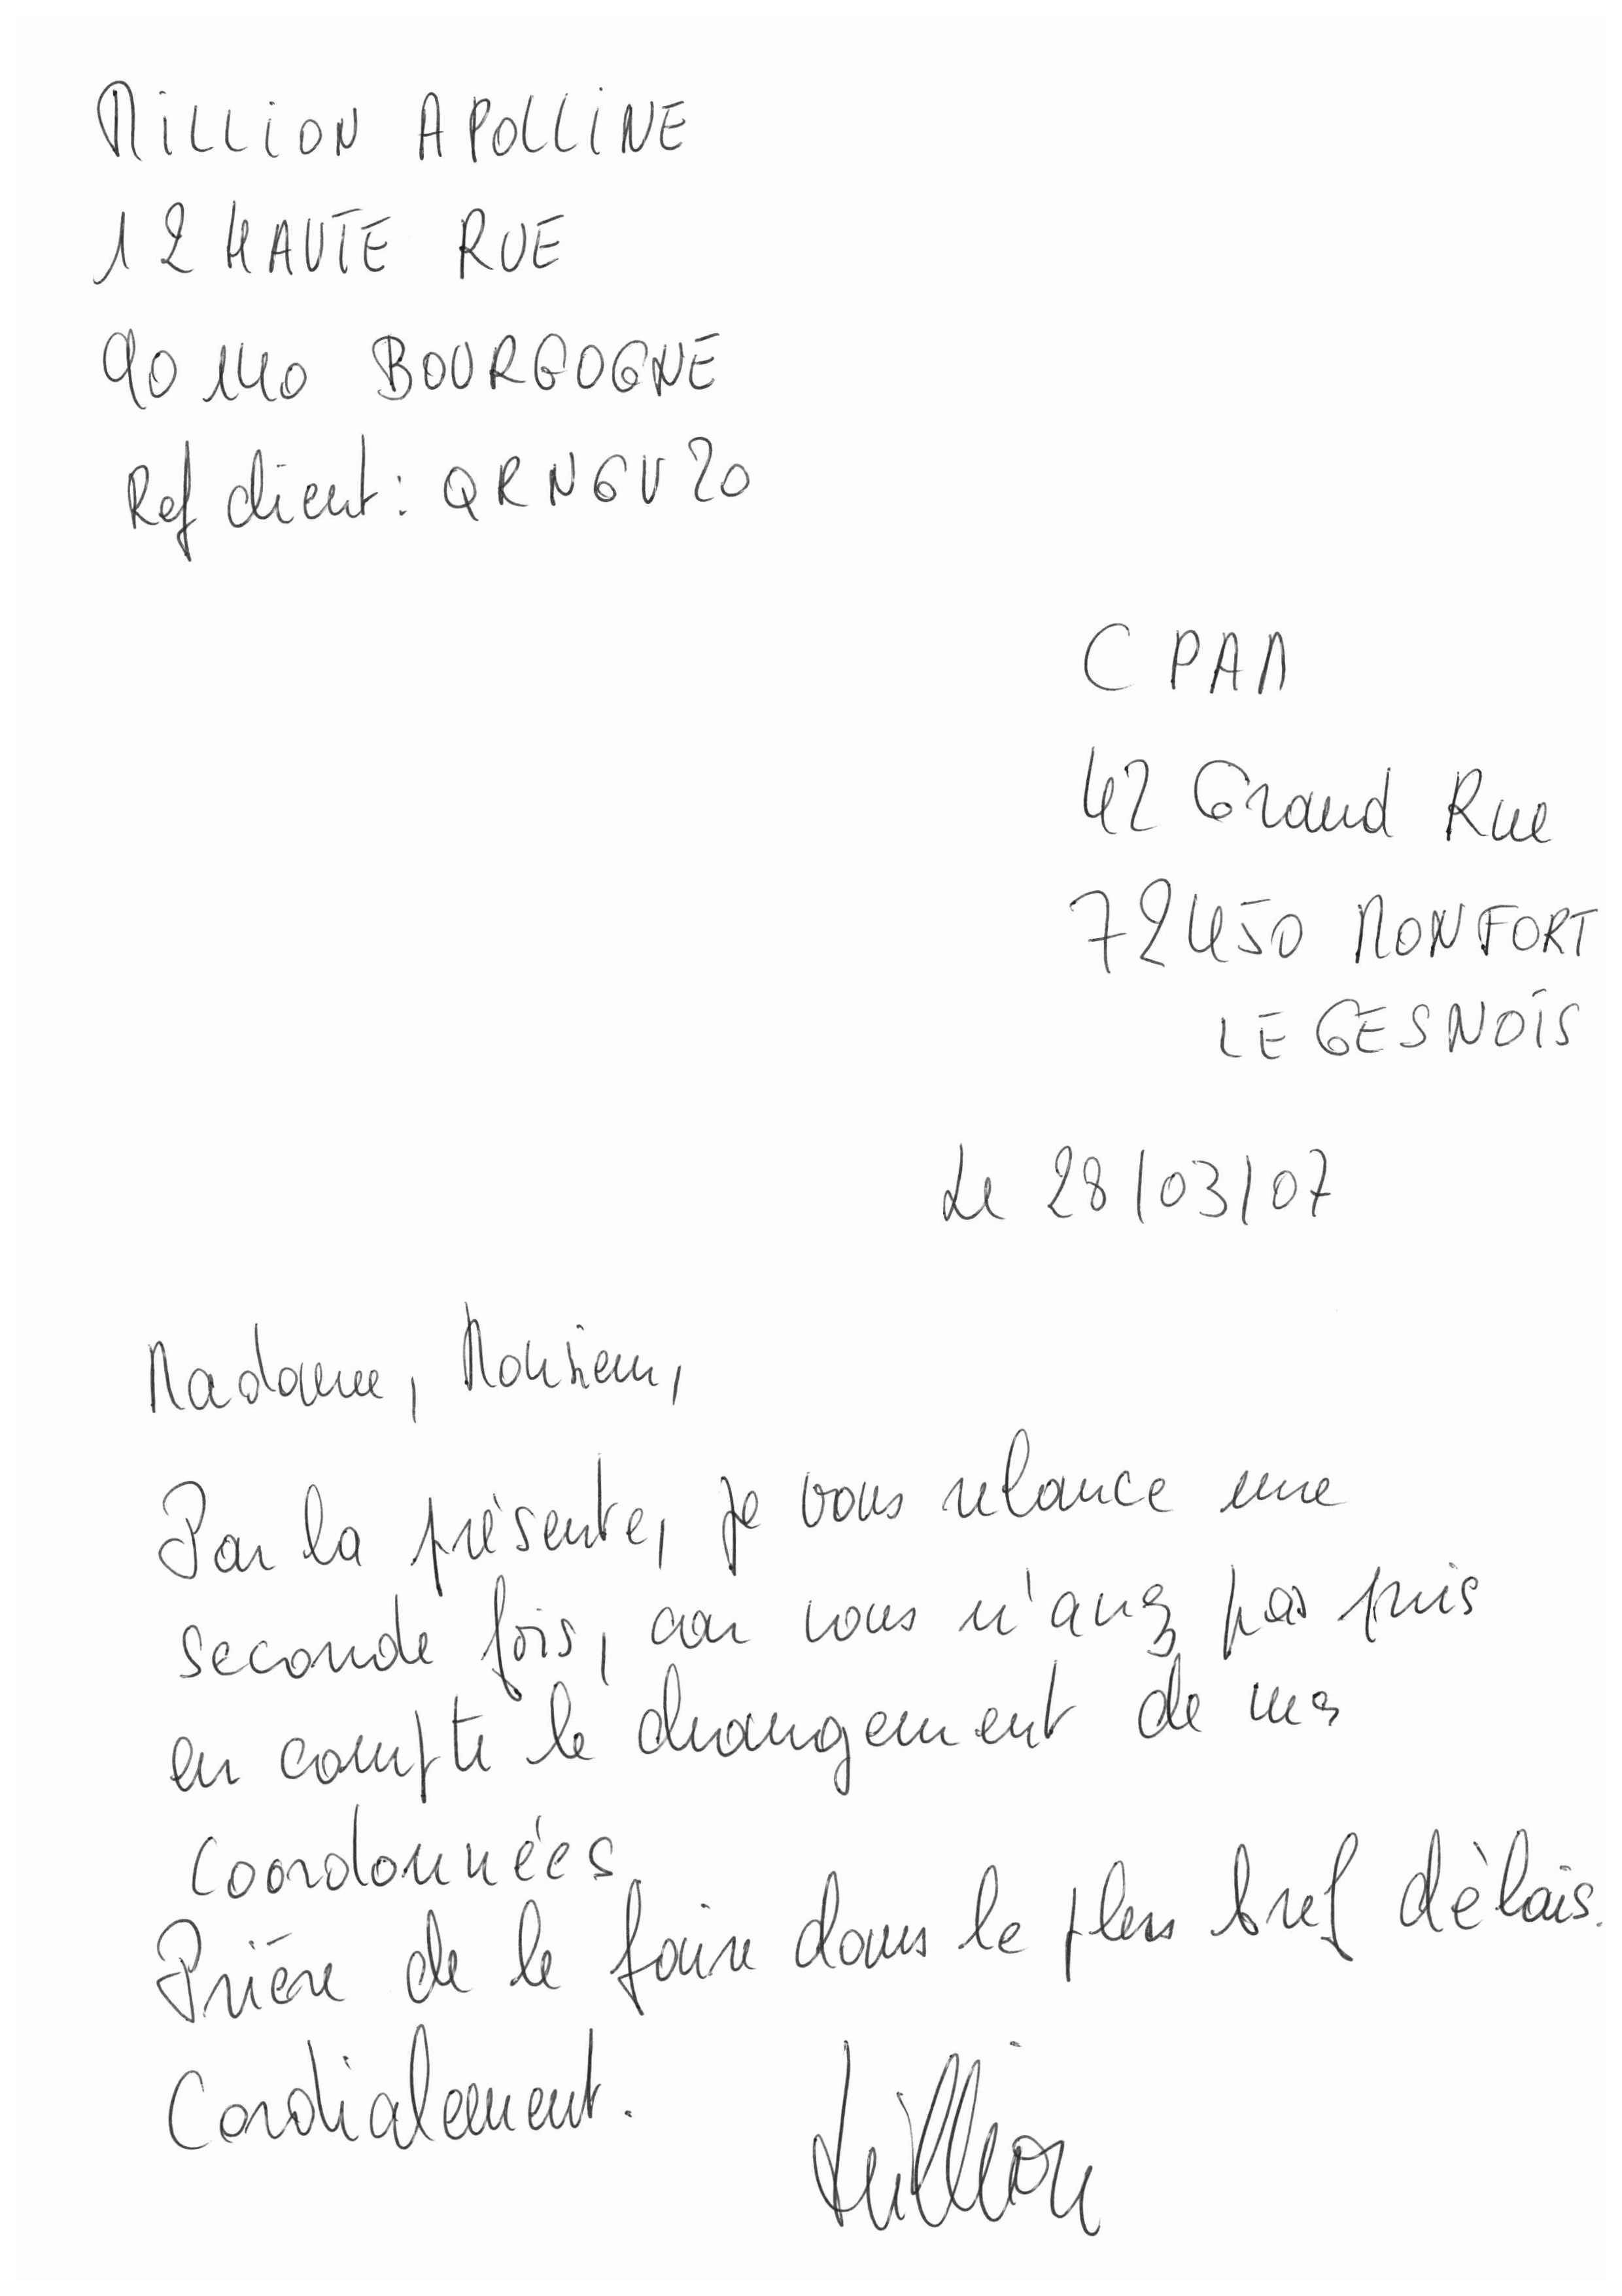 MILLION APOLLINE
12 HAUTE RUE
90140 BOURGOGNE
Ref client : QRNGV20
CPAM
42 Grand Rue
72450 MONFORT
LE GESNOIS
Le 28/03/07
Madame, Monsieur,
Par la présente, je vous relance une
seconde fois, car vous n'avez pas pris
en compte le changement de mes
coordonnées
Prière de le faire dans le plus bref délais.
Cordialement.
Million